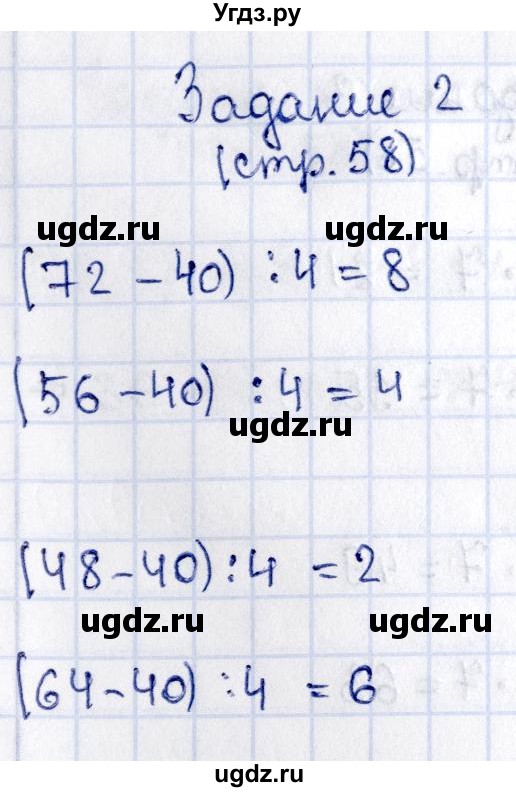 Угдз.ру
Задание 2
(стр. 58)
ugdz.ru
ugdz.ru
(72 - 40) : 4 = 8
(56 - 40) : 4 = 4
ugdz.ru
(48 - 40) : 4 = 2
ugdz.ru
ugdz.ru
(64 - 40) : 4 = 6
ugdz.ru